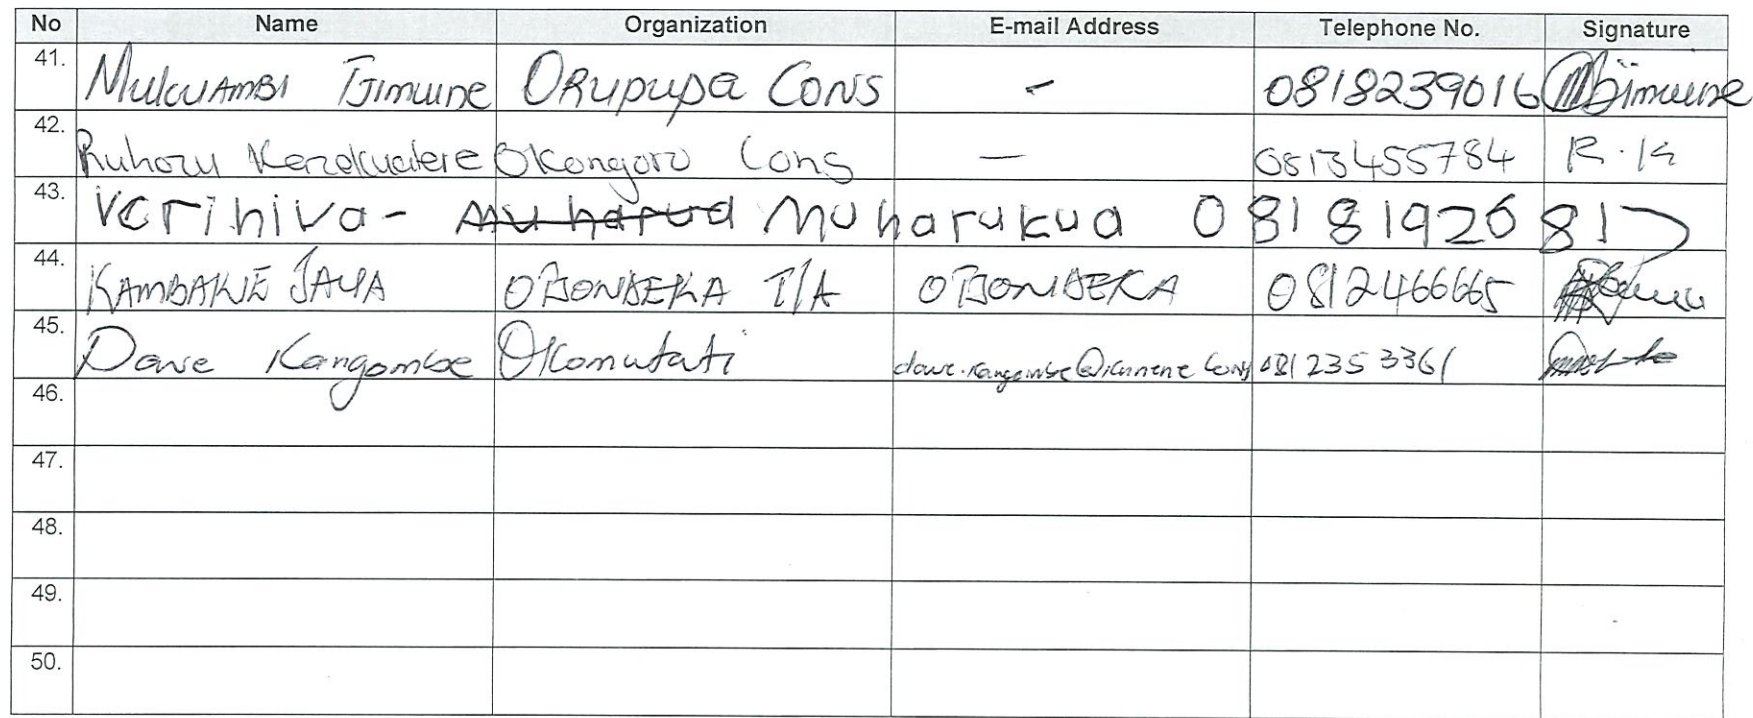 No Name Organization E-mail Address Telephone No. Signature
41. Mukuambi Tjimuine Orupupa Cons - 0818239016 Tjimuine
42. Ruhozu Kezekuatere Okongoro Cons — 0813455784 R.K
43. Verihiva- Muharukua 0818192681
44. KAMBAKUE JAUA OTJONDEKA T/A OTJONDEKA 0812466665
45. Dawe Kangombe Okomutati 081 235 3361
46.
47.
48.
49.
50.